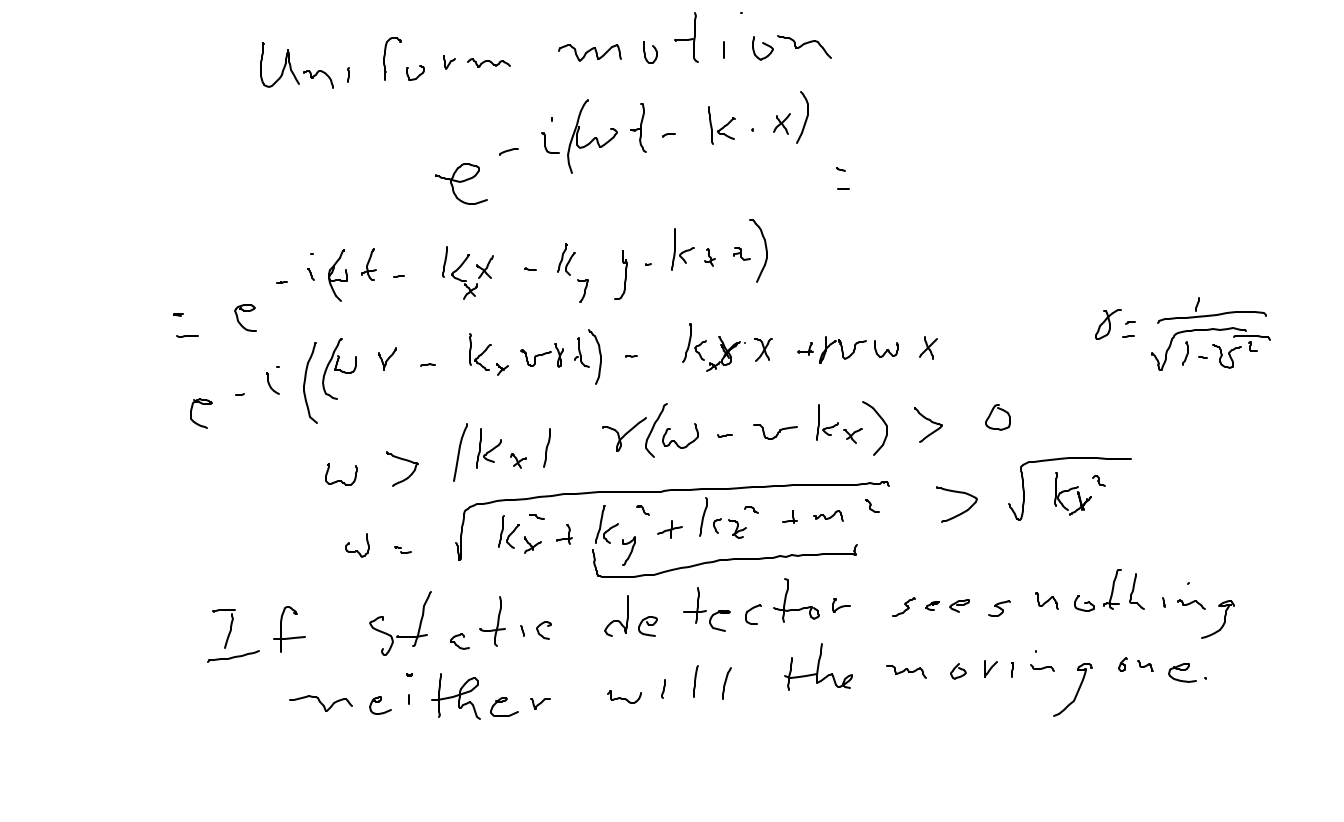 Uniform motion
e^{-i(ωt - k · x)} =
= e^{-i(ωt - k_x x - k_y y - k_z z)}
γ = 1/√(1-v²)
e^{-i((ωγ - k_x vγt) - k_x γ x + γvωx
ω > |k_x| γ(ω - v k_x) > 0
ω = √(k_x² + k_y² + k_z² + m²) > √(k_x²)
If static detector sees nothing
neither will the moving one.